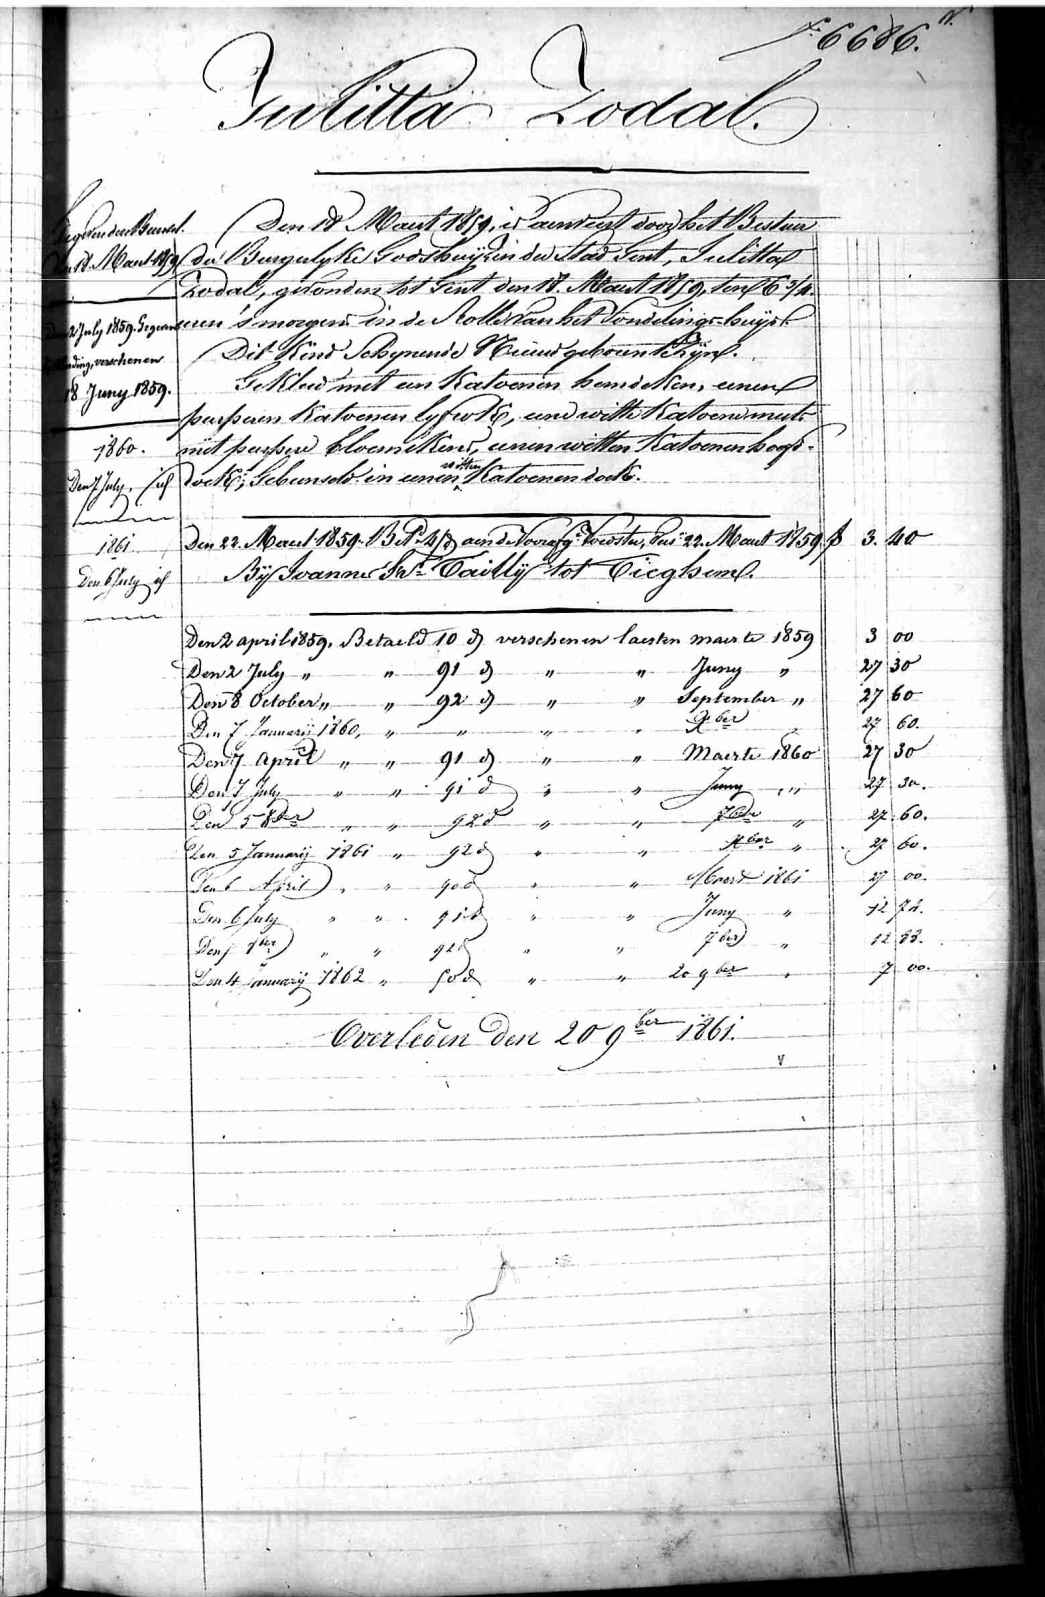 N.° 6686.
Julitta Zodal.
Den 18 Maert 1859, is aenveert door het Bestuer
der Burgerlyke Godshuijzen der Stad Gent, Julitta
Zodal, gevonden tot Gent den 18. Maert 1859, ten 6 3/4
uren 's morgens in de Rolle van het Vondelings-huijs.
Dit Kind Schynende Nieuw geboren te Zyn.
Gekleed met een Katoenen hemdeken, eenen
purperen Katoenen lyfrok, eene witte Katoene muts
met purpere bloemekens, eenen witten Katoenen hoof-
doek; Gebunseld in eenen witten Katoenen doek.
den 18. Maert 1859
den 2 July 1859. Gegeven
Kleeding, verschenen
18 Juny 1859.
1860.
Den 7 July. id
1861
Den 6 July id
Den 22. Maert 1859. Bet. 4/d aen de Voorsz. Voedster, 22. Maert 1859. f 3. 40
Bij Joanna Tailly tot Tieghem.
Den 2 april 1859. Betaeld 10 d verschenen laesten maerte 1859 3 00
Den 2 July " " 91 d " " Juny " 27 30
Den 8 October " " 92 d " " September " 27 60
Den 7 Januarij 1860, " " " " Xber 27 60.
Den 7 April " " 91 d " " Maerte 1860 27 30
Den 7 July " " 91 d " " Juny " 27 30.
Den 5 8ber " " 92 d " " 7ber " 27 60.
Den 5 Januarij 1861 " 92 d " " Xber " 27 60.
Den 6 April " " 90 d " " Maert 1861 27 00.
Den 6 July " " 91 d " " Juny " 12 74.
Den 8ber " " 92 d " " 7ber " 12 88.
Den 4 Januarij 1862 " 50 d " " 20 9ber " 7 00.
Overleden den 20 9ber 1861.